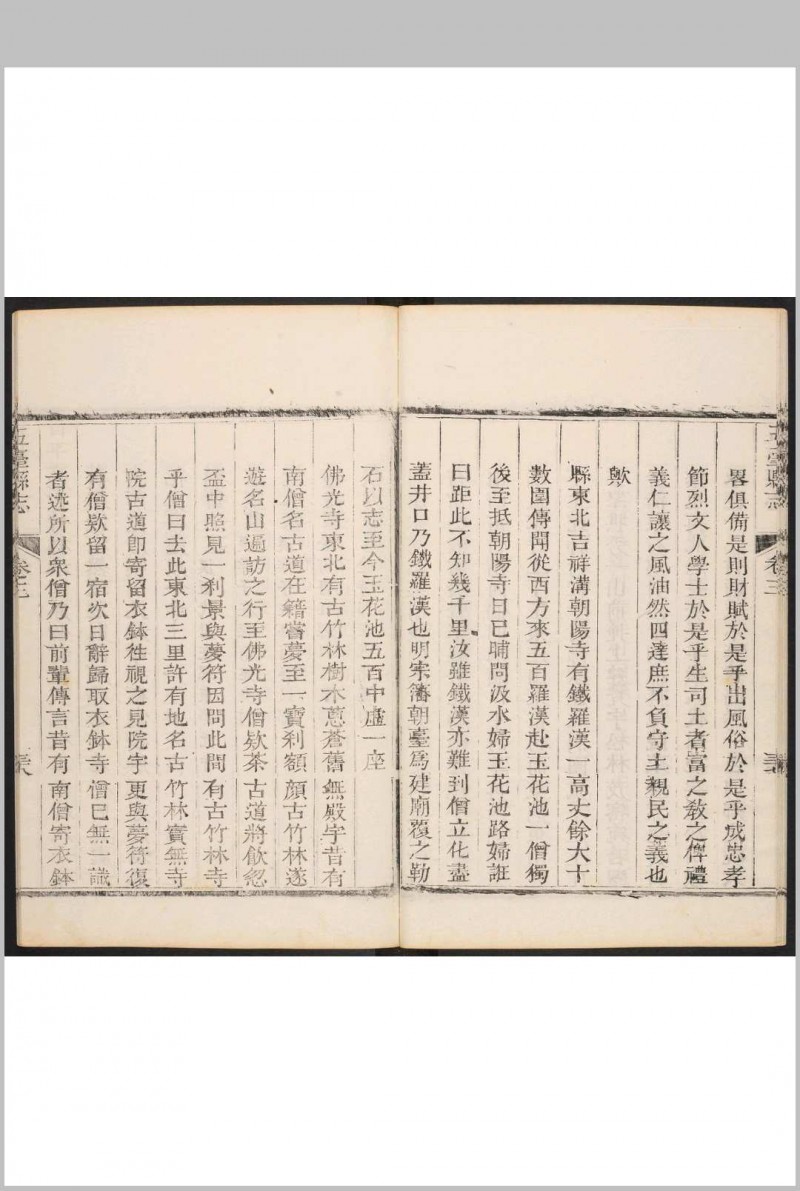 五臺縣志
卷三
畧俱備是則財賦於是乎出風俗於是乎成忠孝
節烈文人學士於是乎生司土者富之敎之俾禮
義仁讓之風油然四達庶不負守土親民之義也
歟
縣東北吉祥溝朝陽寺有鐵羅漢一高丈餘大十
數圍傳聞從西方來五百羅漢赴玉花池一僧獨
後至抵朝陽寺日已晡問汲水婦玉花池路婦誑
曰距此不知幾千里汝雖鐵漢亦難到僧立化盡
蓋井口乃鐵羅漢也明宗藩朝臺爲建廟覆之勒
石以志至今玉花池五百中虛一座
佛光寺東北有古竹林樹木蔥蒼舊無殿宇昔有
南僧名古道在籍嘗夢至一寶刹額顏古竹林遂
遊名山遍訪之行至佛光寺僧欵茶古道將飲忽
盃中照見一刹景與夢符因問此間有古竹林寺
乎僧曰去此東北三里許有地名古竹林實無寺
院古道卽寄留衣鉢徃視之見院宇更與夢符復
有僧欵留一宿次日辭歸取衣鉢寺僧已無一識
者述所以衆僧乃曰前輩傳言昔有南僧寄衣鉢
五臺縣志
卷三